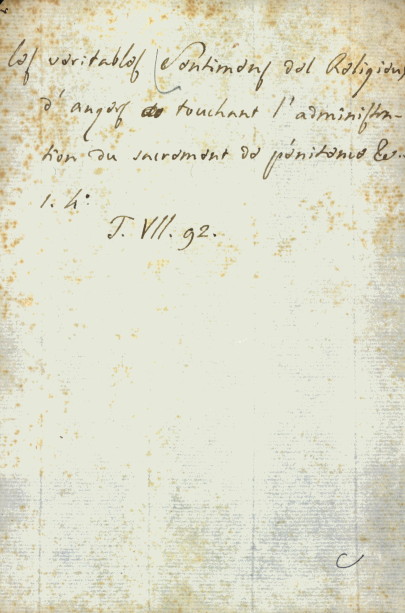 les veritables Sentimens des Religieux
d'angers touchant l'administra-
tion du sacrement de pénitence &c..
1. 4°
T. VII. 92.
C